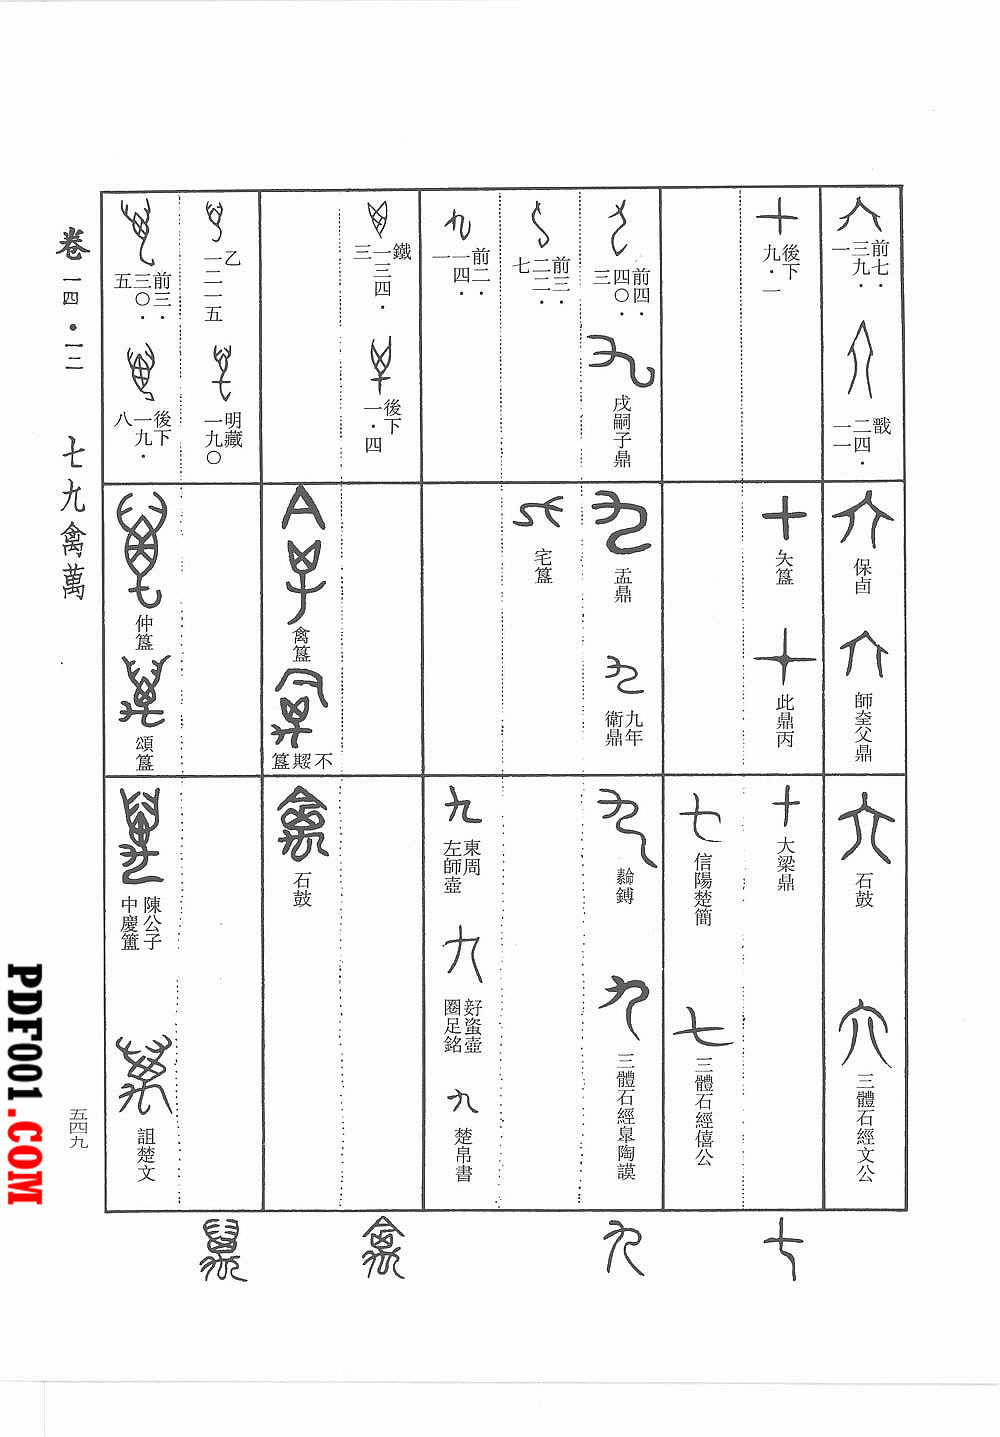 前七・
三九・
一
戩
二四・
一一
保卣
師㚔父鼎
石鼓
三體石經文公
後下
九・一
夨簋
此鼎丙
大梁鼎
信陽楚簡
三體石經僖公
七
前四・
四〇・
三
戍嗣子鼎
盂鼎
九年
衛鼎
鎛
三體石經皋陶謨
九
前三・
二二・
七
宅簋
前二・
一四・
一
東周
左師壺
𧊒壺
圈足銘
楚帛書
鐵
一三四・
三
後下
一・四
禽簋
不㠱簋
石鼓
禽
乙
一二一五
明藏
一九〇
前三・
三〇・
五
後下
一九・
八
仲簋
頌簋
陳公子
中慶簠
詛楚文
萬
卷一四・一二 七九禽萬
五四九
PDF001.COM